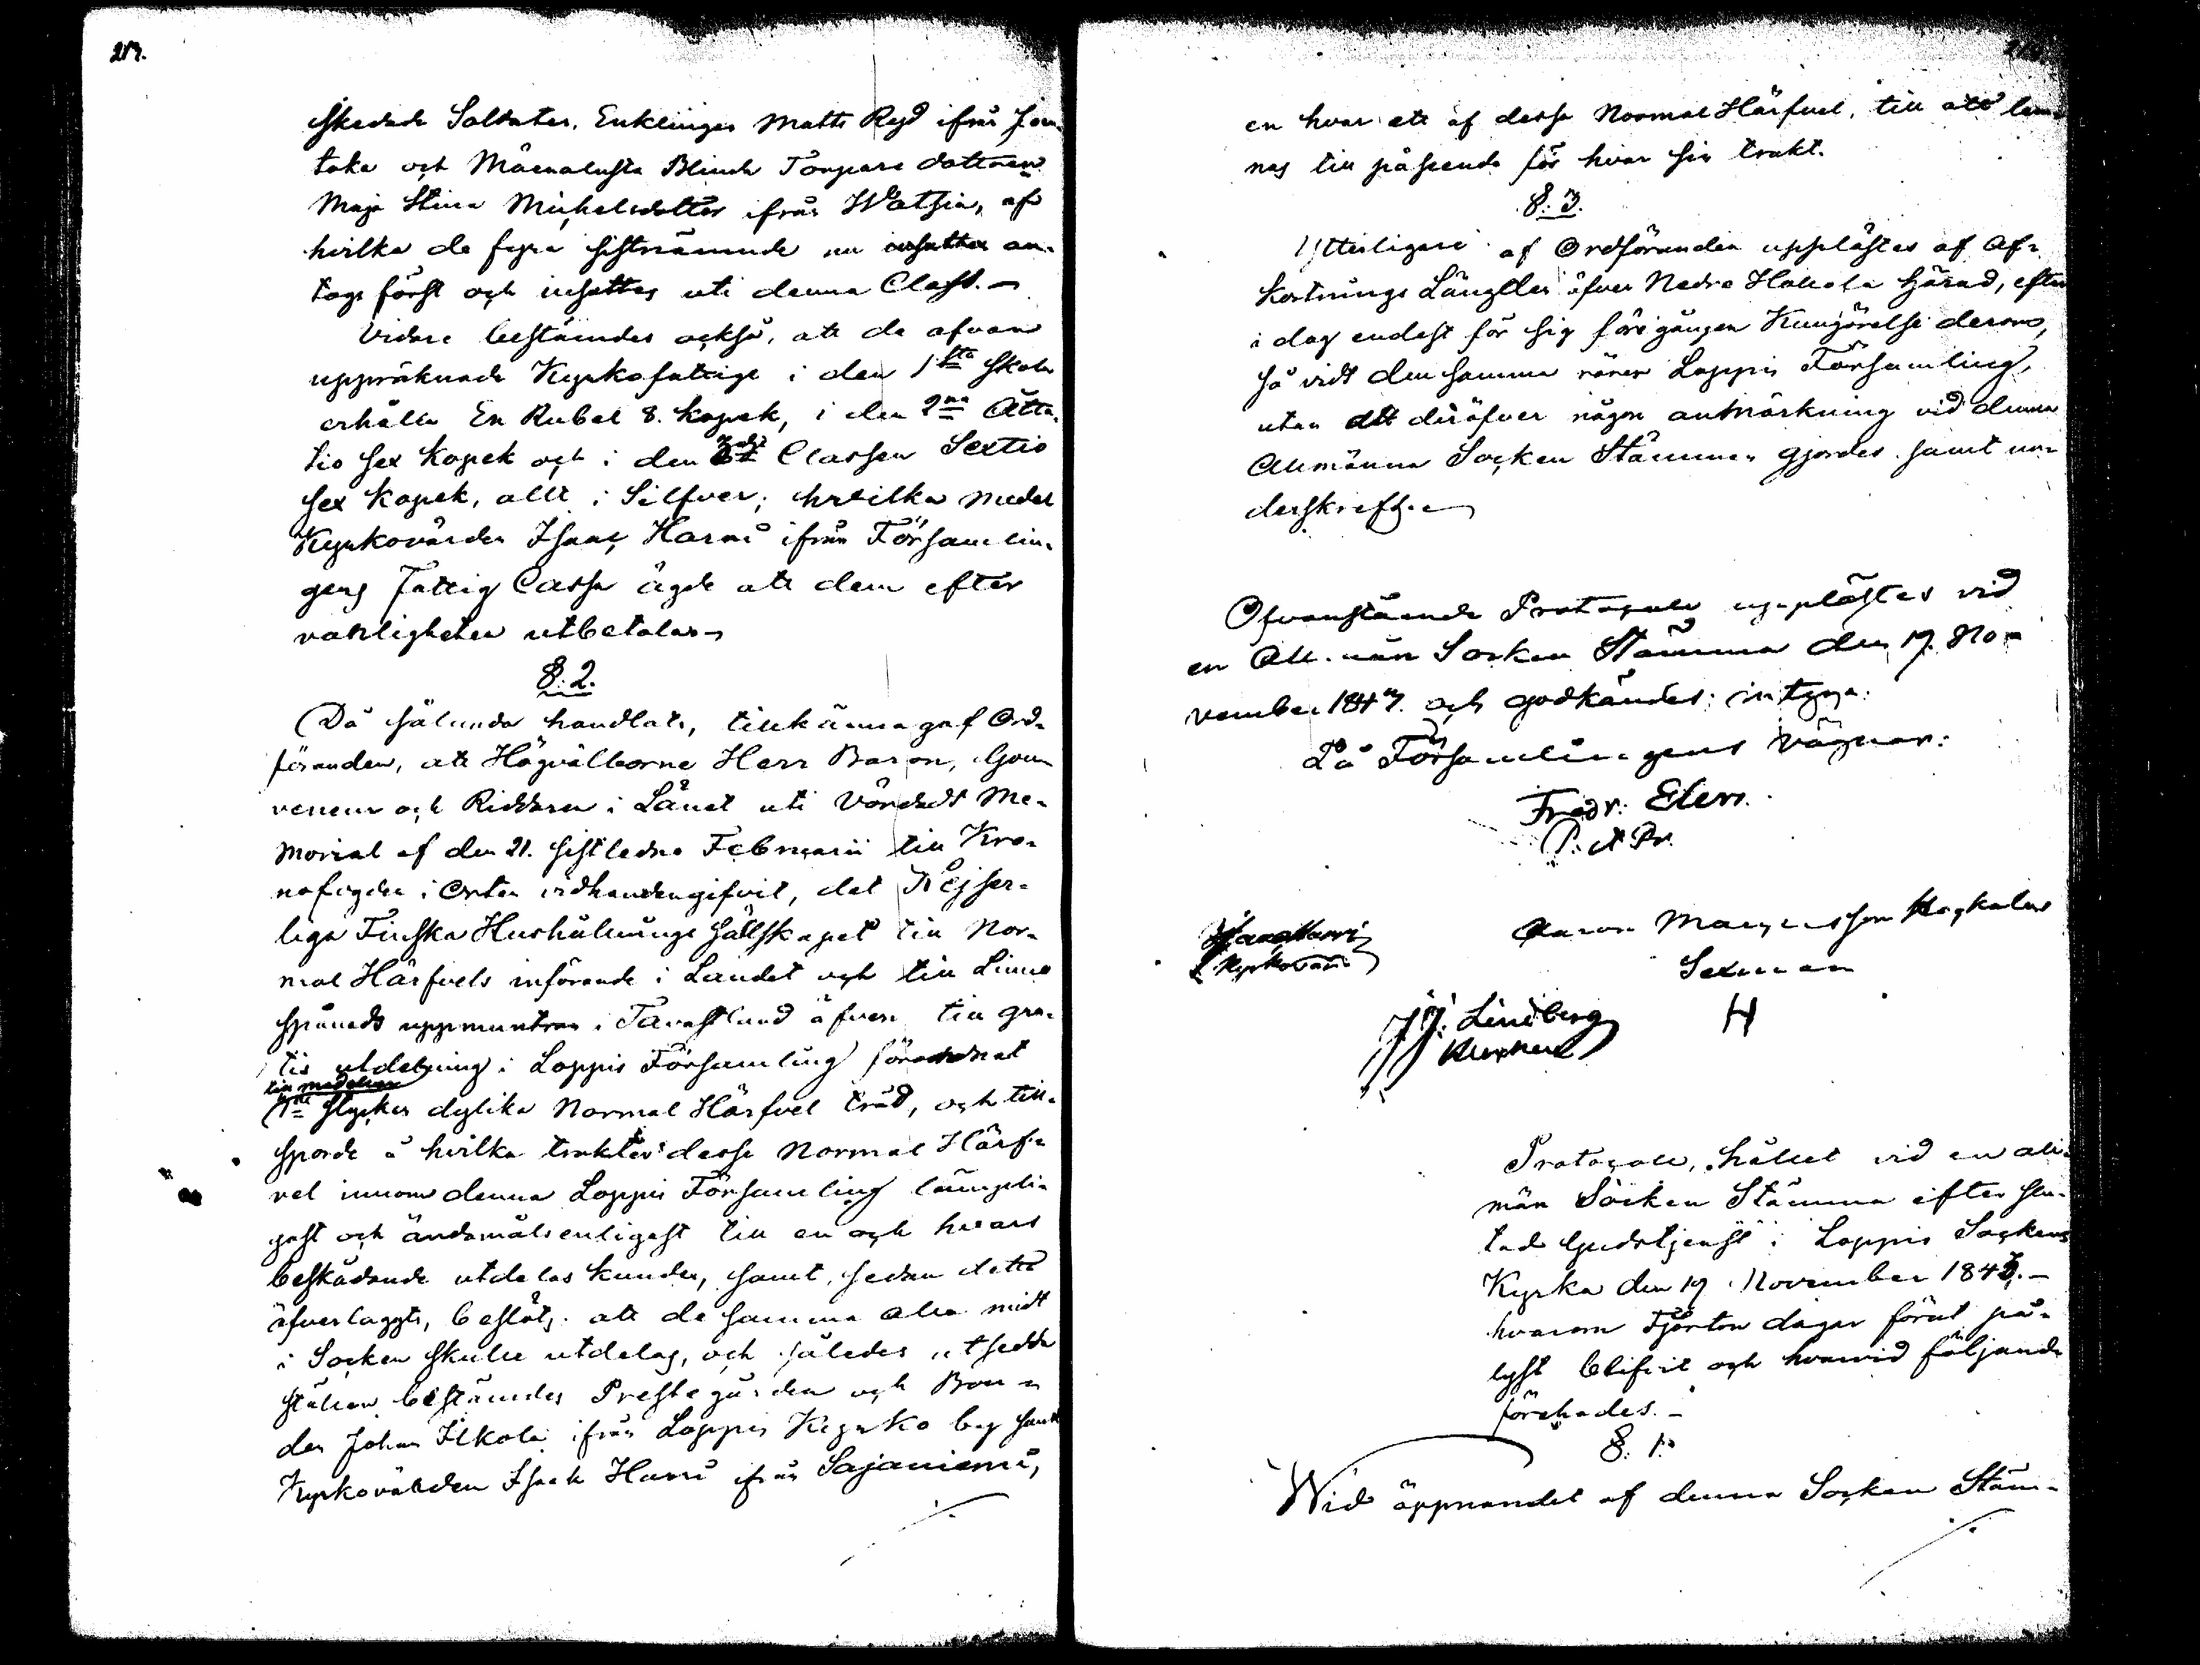 213.
skedade Soldaten, Enklingen Matts Ryd ifrån Jon-
toka och Måenalusta Blinda Torpare dottren
Maja Stina Michelsdotter ifrån Watsia, af
hvilka de fyra sistnämnde nu insattes an-
togs först och insattes uti denna Class. –
Vidare bestämdes också, att de ofvan
uppräknade Kyrkofattige i den 1sta skola
erhålla En Rubel 8. Kopek, i den 2na Åtta-
tio sex Kopek och i den 3dje Classen Sextio
sex Kopek, allt i Silfver; hvilka medel
Kyrkovärden Isaac Harni ifrån Församlin-
gens Fattig Cassa ägde att dem efter
vanligheten utbetala. –
§. 2.
Då sålunda handlats, tillkännagaf Ord-
föranden, att Högvälborne Herr Baron, Gou-
verneur och Riddaren i Länet uti Vördadt Me-
morial af den 21. sistledne Februarii till Kro-
nofogden i Orten vidhandengifvit, det Kejser-
liga Finska Hushållnings Sällskapet till Nor-
mal Härfvels införande i Landet och till Linne
spånads uppmuntran i Tavastland äfven till gra-
tis utdelning i Loppis Församling förordnat
till meddelan
stycken dylika Normal Härfvel träd, och till-
sporde å hvilka trakter desse Normal Härf-
vel innom denna Loppis Församling lämpli-
gast och ändamålsenligast till en och hvars
beskådande utdelas kunde, samt, sedan detta
öfverlaggts, beslöts att de samma alla midt
i Socken skulle utdelas, och således utsedde
ställen bestämdes Prestegården och Bon-
den Johan Ilkola ifrån Loppis Kyrko by samt
Kyrkovärden Isaak Harni ifrån Sajaniemi,
en hvar ett af dessa Normal Härfvel, till att lem-
nas till påseende för hvar sin trakt.
§. 3.
Ytterligare af Ordföranden upplästes af Af-
kortnings Längder öfver Nedre Hollola Härad, efter
i dag endast för sig föregången Kungörelse derom,
så vidt den samma rörer Loppis Församling,
utan att deröfver någon anmärkning vid denna
Allmänna Socken Stämman gjordes samt un-
derskrefs. –
Ofvanstående Protocoll upplästes vid
en Allmän Socken Stämma den 19. No-
vember 1843. och godkändes; intyga.
På Församlingens Vägnar:
Fredr: Elers.
P. et Pr.
Isaac Harni
Kyrkovärd
Aaron Mangusson Hagkulas
Sexman
H
J. J. Lindberg
Protocoll, hållet vid en all-
män Socken Stämma efter slu-
tad Gudstjenst i Loppis Sockens
Kyrka den 19 November 1843. –
hvarom Fjorton dagar förut på-
lyst blifvit och hvarvid följande
förehades. –
§. 1.
Wid öppnandet af denna Socken Stäm-